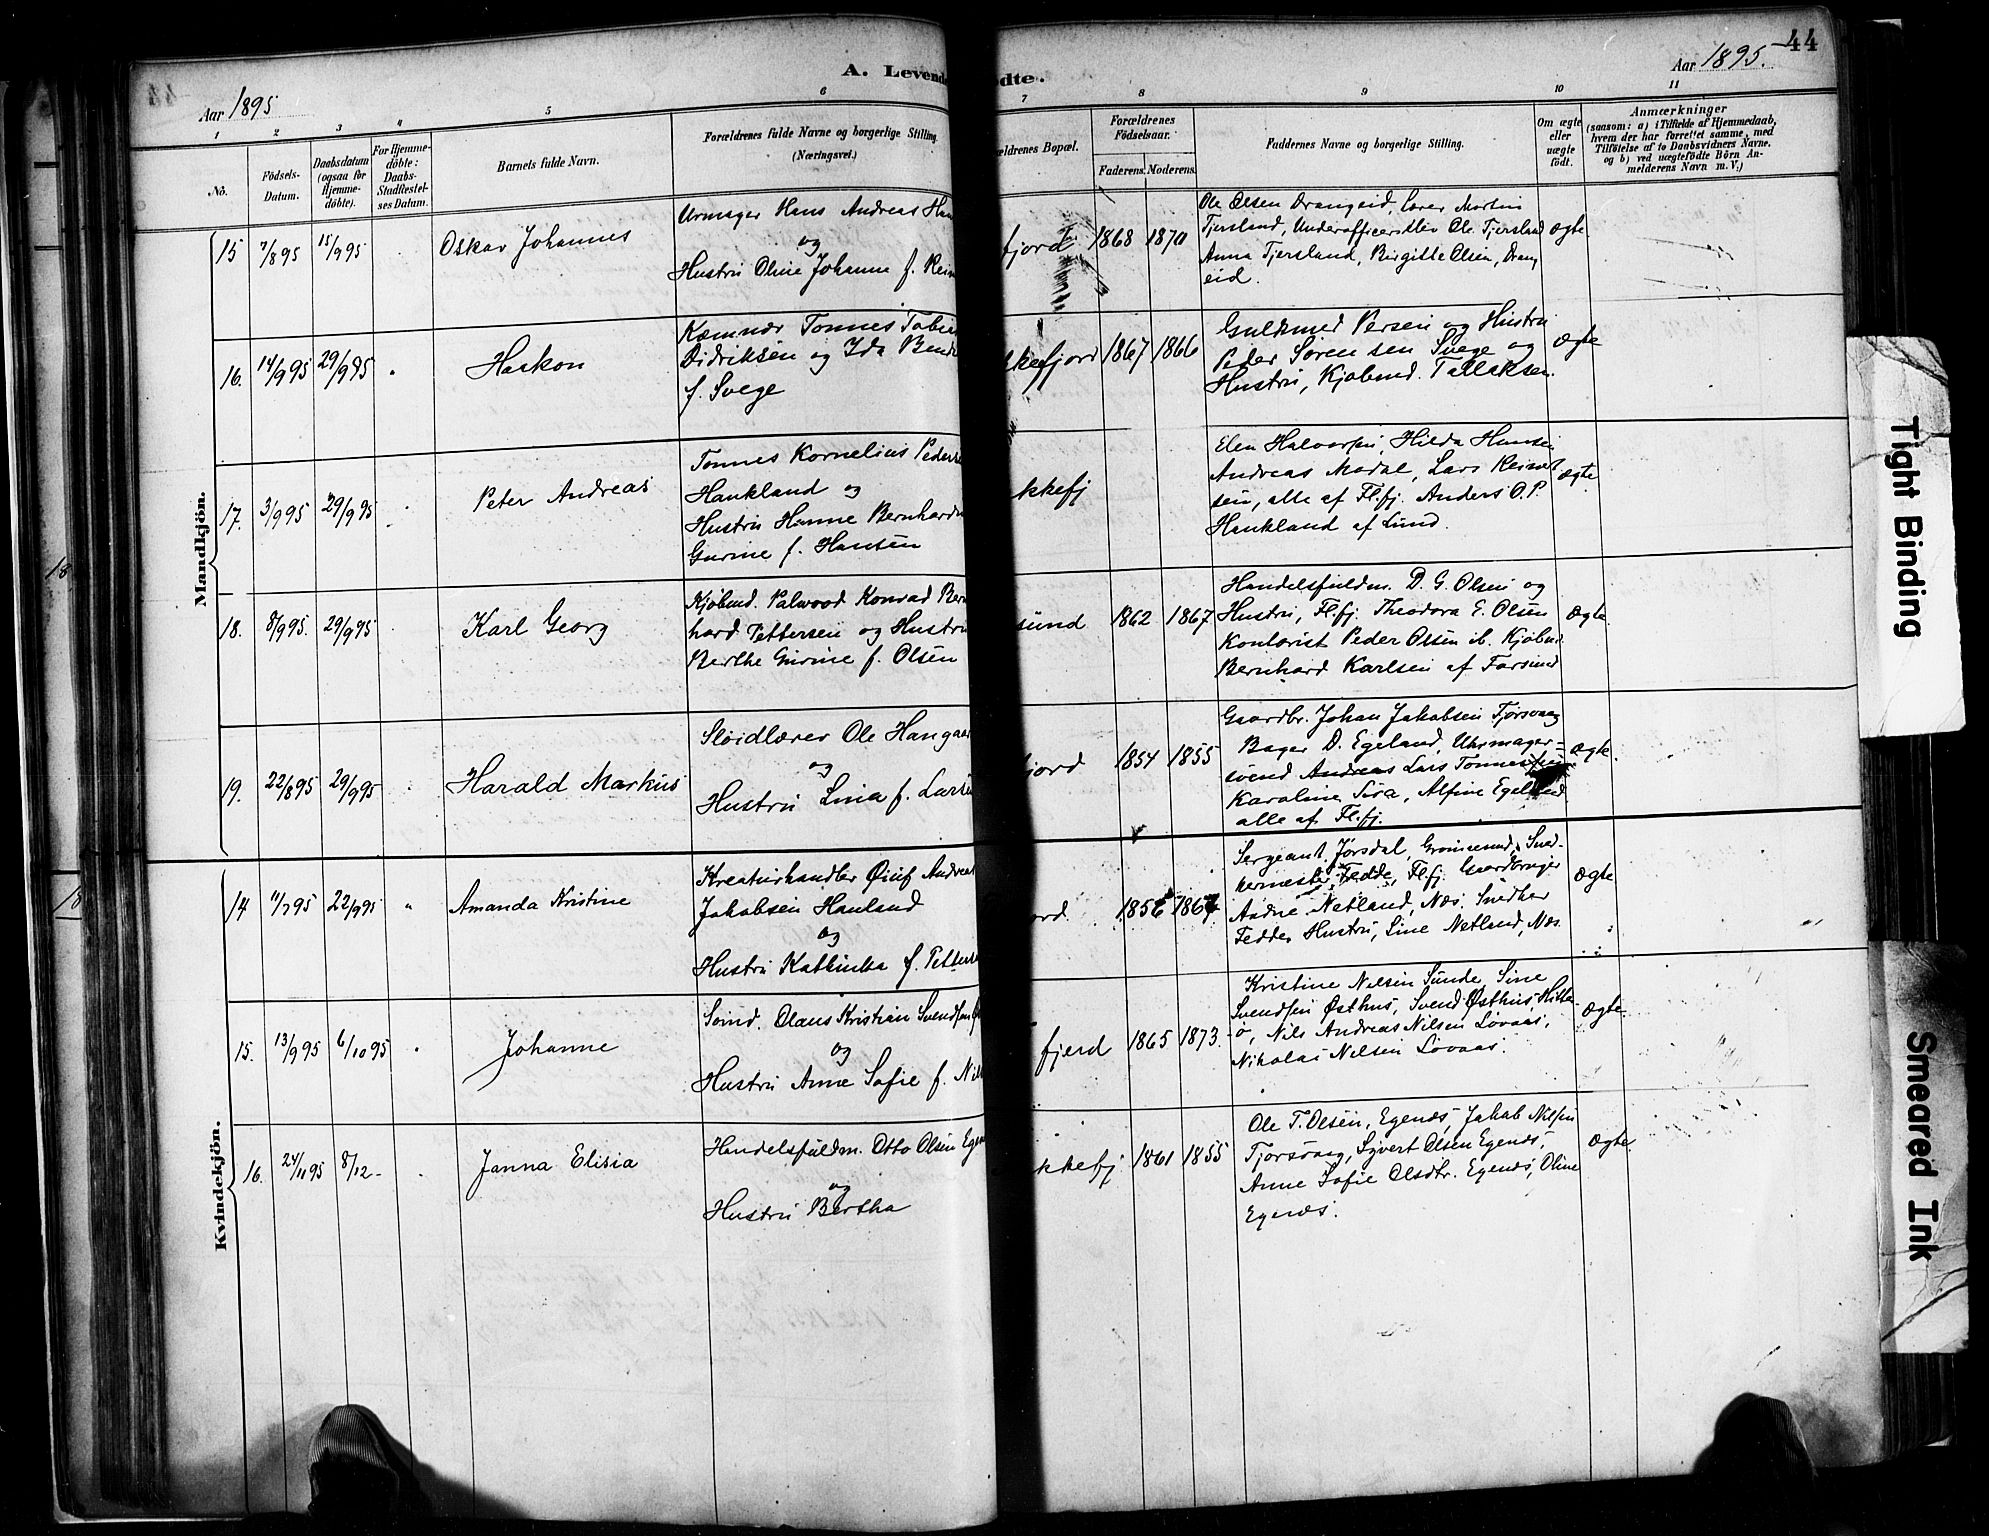 44
A. Levende
ødte.
Aar 1895
Aar 1895.
1 2 3 4 5 6 7 8 9 10 11
No.
Födsels-Datum.
Daabsdatum (ogsaa for Hjemme-döbte).
For Hjemme-döbte: Daabs-Stadfæstel-ses Datum.
Barnets fulde Navn.
Forældrenes fulde Navne og borgerlige Stilling.
(Næringsvei.)
ældrenes Bopæl.
Forældrenes Födselsaar.
Faderens. Moderens.
Faddernes Navne og borgerlige Stilling.
Om ægte eller uægte födt.
Anmærkninger
(saasom: a) i Tilfælde af Hjemmedaab,
hvem der har forrettet samme, med
Tilföielse af to Daabsvidners Navne,
og b) ved uægtefödte Börn An-
melderens Navn m. V.)
Mandkjön.
15 7/8 95 15/9 95 Oskar Johannes
Urmager Hans Andreas Han
og
Hustru Oline Johanne f. Rein
fjord 1868 1870
Ole Olsen Drangeid, Lærer Martin
Tjersland, Underofficerselev Ole Tjersland
Anna Tjersland, Birgitte Olsen, Drang
eid.
ægte
16. 14/9 95 29/9 95 " Haakon
Kæmnær Tonnes Tobia
Didriksen og Ida Bend
f. Svege
kkefjord 1867 1866
Guldsmed Persen og Hustru
Peder Sørensen Svege og
Hustru, Kjøbmd. Tallaksen.
ægte
17. 3/9 95 29/9 95 Peter Andreas
Tonnes Kornelius Peders
Haukland og
Hustru Hanne Bernhard
Gurine f. Hansen
kkefj
Elen Halvorsen, Hilda Hansen
Andreas Modal, Lars Reinert
sen, alle af Fl.fj. Anders O. P.
Haukland af Lund.
ægte
18. 8/9 95. 29/9 95 Karl Georg
Kjøbmd. Palwood Konrad Bern
hard Pettersen og Hustru
Berthe Gurine f. Olsen
sund 1862 1867
Handelsfuldm. D. G. Olsen og
Hustru, Fl.fj. Theodora E. Olsen
Kontorist Peder Olsen ib. Kjøbm.
Bernhard Karlsen af Farsund
ægte.
19. 22/8 95 29/9 95 Harald Markus
Sløidlærer Ole Hangaar
og
Hustru Lina f. Larse
jord 1854 1855
Gaardbr. Johan Jakobsen Tjørsvaag
Bager D. Egeland, Uhrmager-
svend Andreas Lars Tonnessen
Karoline Sira, Alfine Egeland
alle af Fl.fj.
ægte.
Kvindekjön.
14 11/7 95 22/9 95 " Amanda Kristine
Kreaturhandler Øiuf Andreas
Jakobsen Hauland
og
Hustru Kathinka f. Petters
ord 1856 1867
Sergeant Jørsdal, Sned-
kermester Fedde, Fl.fj. Gaardbruger
Aadne Netland, Næs. Snedker
Feddes Hustru, Line Netland, Næs.
ægte
15. 13/9 95 6/10 95 Johanne
Sømd. Olaus Kristian Svendsen
og
Hustru Anne Sofie f. Niel
fjerd 1865 1873.
Kristine Nilsen Sunde, Sine
Svendsen Østhus, Svend Østhus, Hitter
ø, Nils Andreas Nilsen Løvaas,
Nikolai Nilsen Løvaas.
ægte
16. 24/11 95 8/12 - Janna Elisia
Handelsfuldm. Otto Olsen Egen
og
Hustru Bertha
kkefj 1861 1855
Ole T. Olsen, Egenæs, Jakob Nilsen
Tjorsvaag, Syvert Olsen Egenæs,
Anne Sofie Olsdtr. Egenæs, Oline
Egenæs.
ægte.
18
18
Tight Binding
Smeared Ink